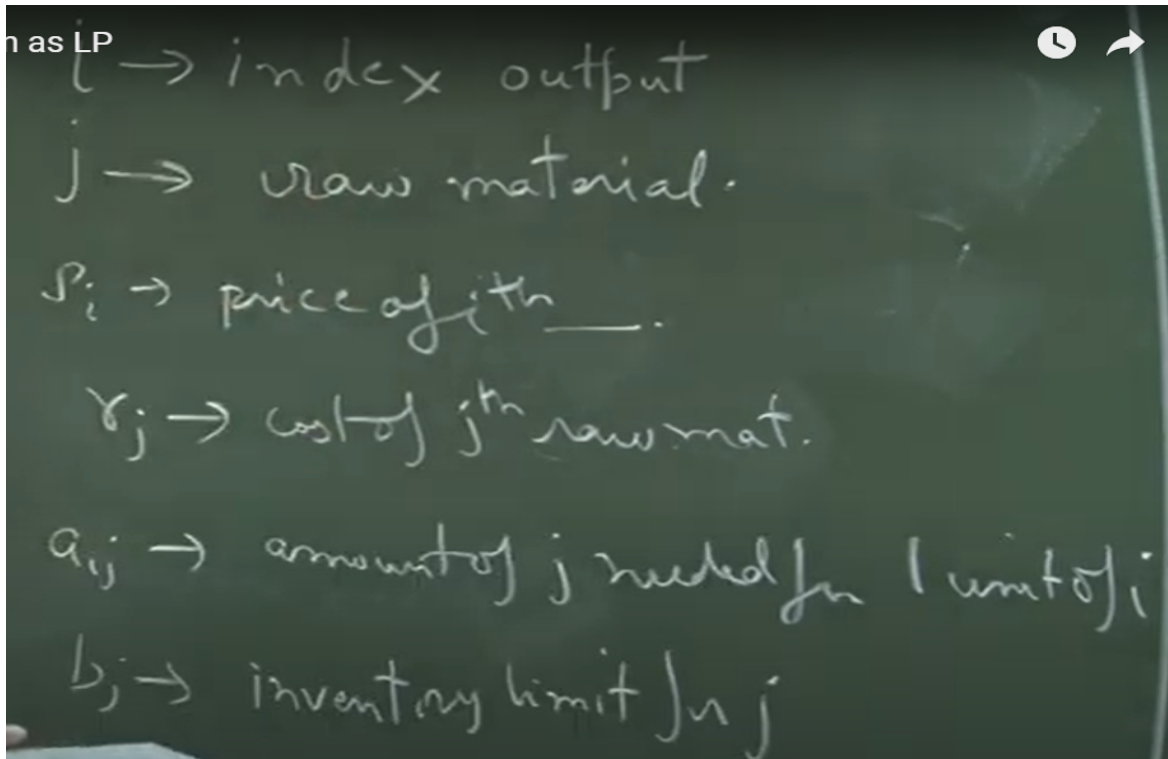 n as LP
i → index output
j → raw material.
Pi → price of ith __.
rj → cost of jth raw mat.
aij → amount of j needed for 1 unit of i
bj → inventory limit for j